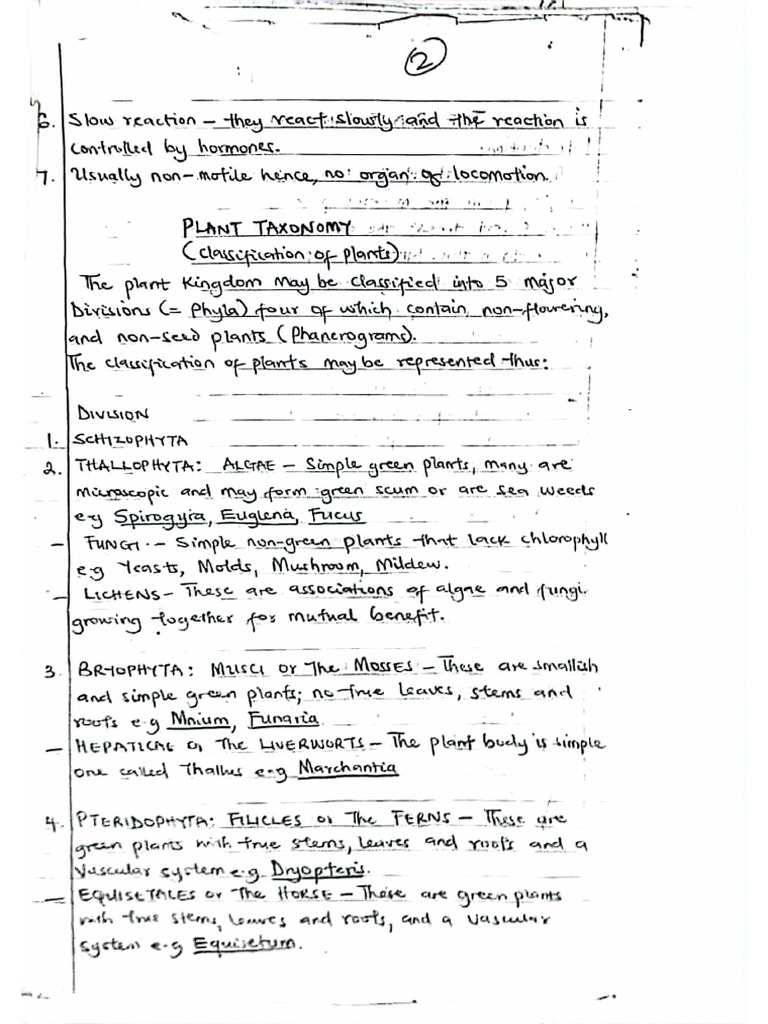 2
6. Slow reaction – they react slowly and the reaction is
controlled by hormones.
7. Usually non-motile hence, no organ of locomotion.
PLANT TAXONOMY
(Classification of plants)
The plant Kingdom may be classified into 5 major
Divisions (= Phyla) four of which contain non-flowering,
and non-seed plants (Phanerograms).
The classification of plants may be represented thus:
DIVISION
1. SCHIZOPHYTA
2. THALLOPHYTA: ALGAE – Simple green plants, many are
microscopic and may form green scum or are sea weeds
e.g Spirogyra, Euglena, Fucus
– FUNGI – Simple non-green plants that lack chlorophyll
e.g Yeasts, Molds, Mushroom, Mildew.
– LICHENS – These are associations of algae and fungi
growing together for mutual benefit.
3. BRYOPHYTA: MUSCI or The MOSSES – These are smallish
and simple green plants; no true leaves, stems and
roots e.g Mnium, Funaria
– HEPATICAE or The LIVERWORTS – The plant body is simple
one called Thallus e-g Marchantia
4. PTERIDOPHYTA: FILICLES or The FERNS – These are
green plants with true stems, leaves and roots and a
vascular system e.g. Dryopteris.
– EQUISETALES or The HORSE – These are green plants
with true stems, leaves and roots, and a vascular
system e-g Equisetum.